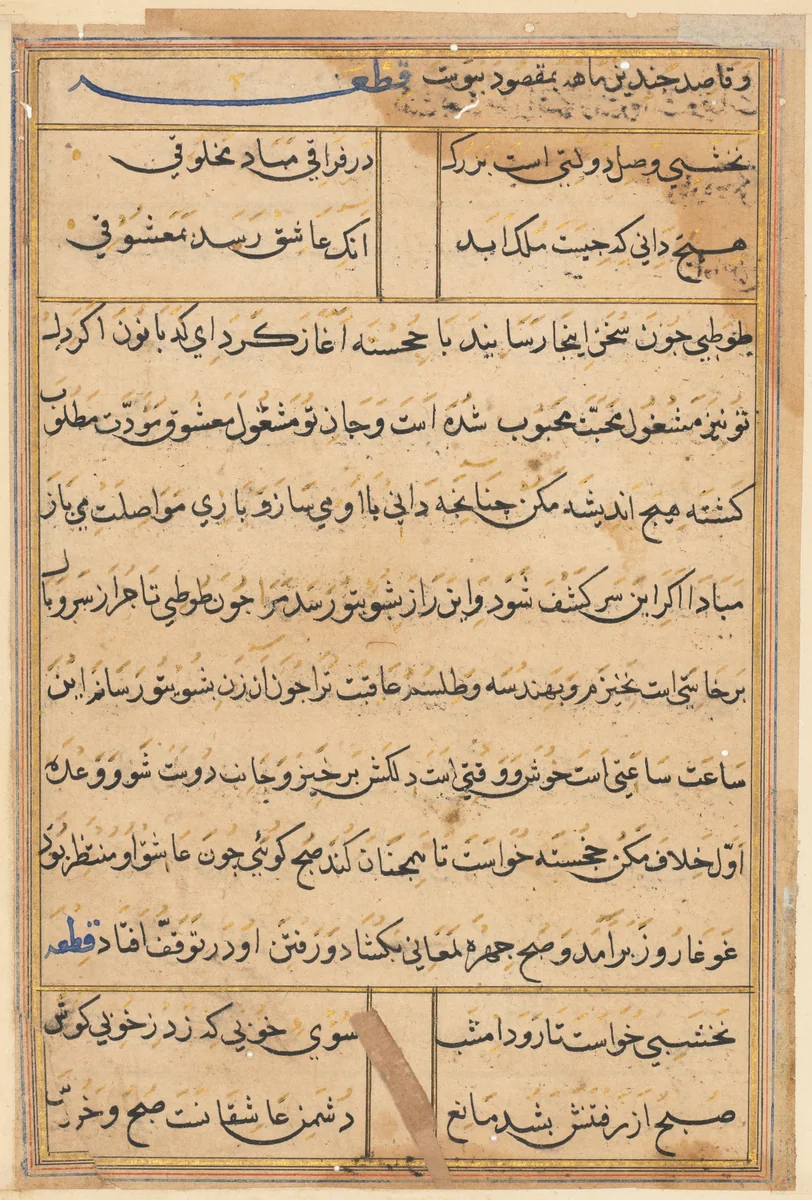 و قاصد چندین ماهه بمقصود پیوست قطعه
نخشبی وصل دولتی است بزرک در فراقی مباد مخلوقی
هیچ دانی که جیست ملک ابد انک عاشق رسد بمعشوقی
طوطی جون سخن اینجا رسانید با خجسته آغاز کرد ای کدبانو اکر دل
تو نیز مشغول محبت محبوب شده است و جان تو مشغول معشوق مودّت مطلوب
کشته هیج اندیشه مکن چنانجه دانی با او می ساز و باری مواصلت می باز
مبادا اکر این سر کشف شود و این راز بشوی تو رسد مرا جون طوطی تاجر از سر و بال
برخاستی است بخیزم و بهندسه و طلسم عاقبت ترا جون آن زن بشوی تو رسانم این
ساعت ساعتی است خوش و وقتی است دلکش برخیز و جانب دوست شو و وعده
اوّل خلاف مکن خجسته خواست تا همجنان کند صبح کوئی جون عاشق او منتظر بود
غوغا روز برآمد و صبح جهره لمعانی بکشاد و رفتن او در توقفّ افتاد قطعه
نخشبی خواست تا رود امشب سوی خوبی که زد ز خوبی کوش
صبح از رفتنش بشد مانع دشمن عاشقانست صبح و خروس